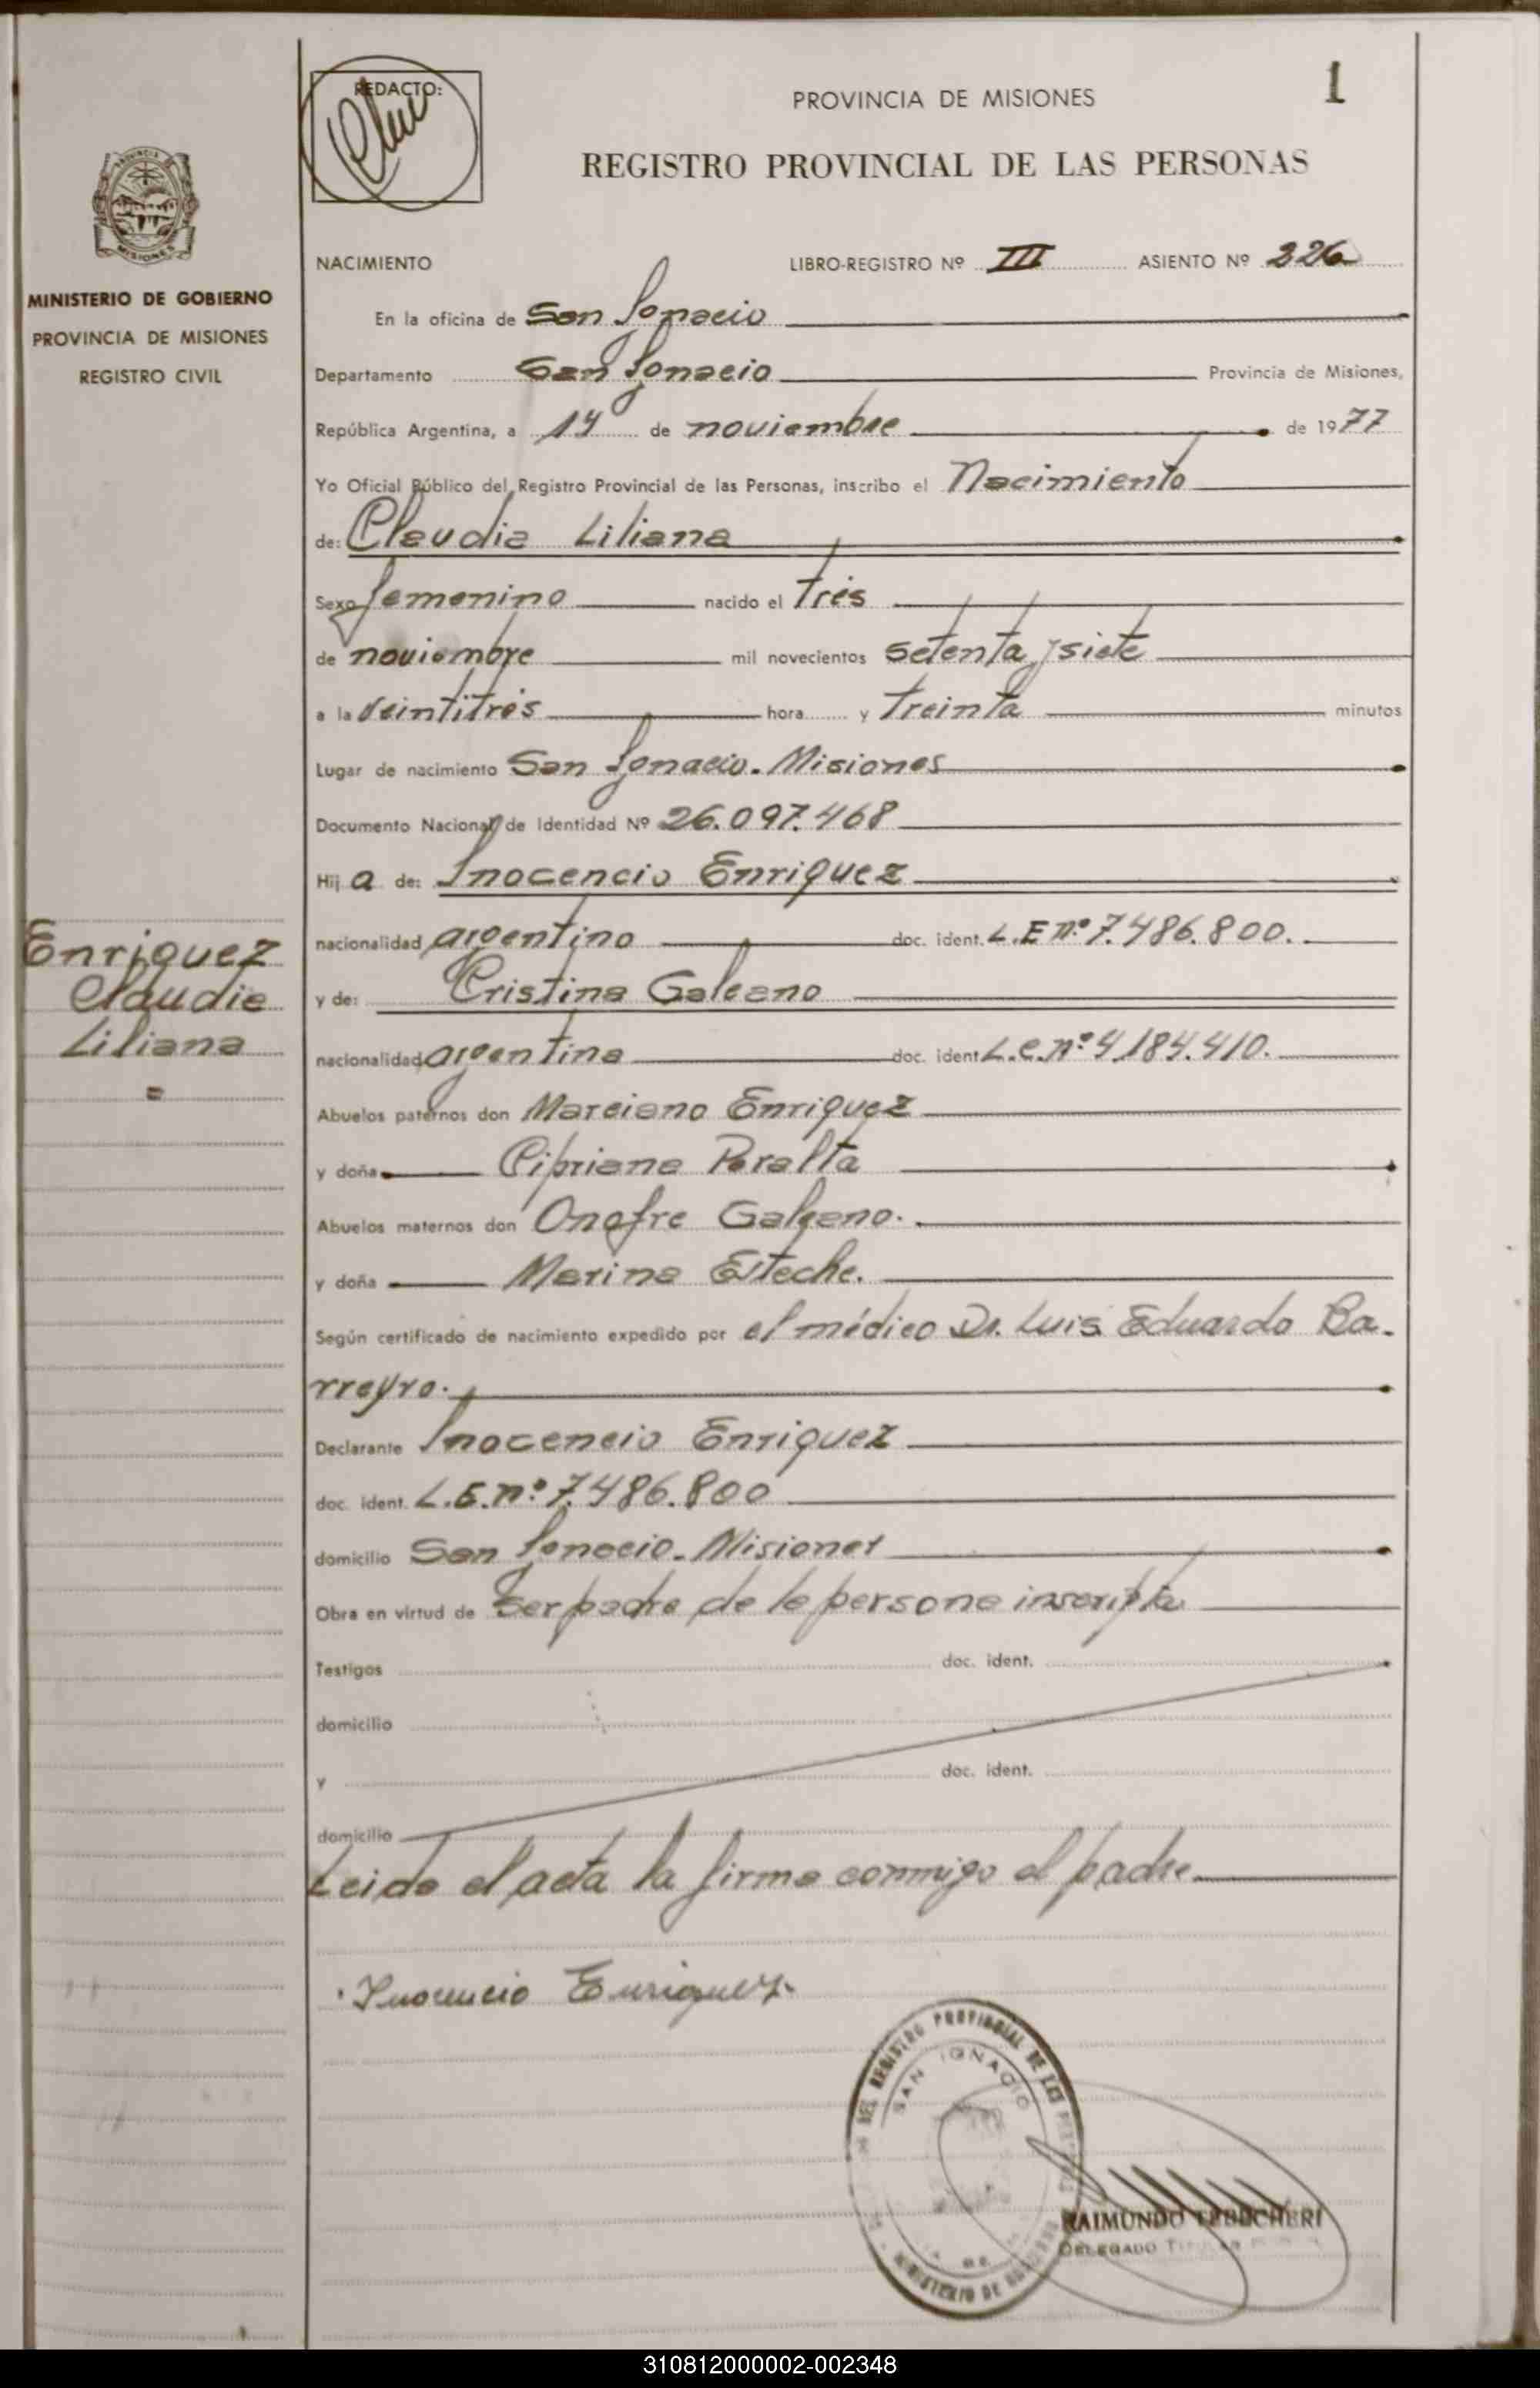 REDACTO:
PROVINCIA DE MISIONES
1
REGISTRO PROVINCIAL DE LAS PERSONAS
PROVINCIA DE
MISIONES
MINISTERIO DE GOBIERNO
PROVINCIA DE MISIONES
REGISTRO CIVIL
NACIMIENTO LIBRO-REGISTRO Nº III ASIENTO Nº 226
En la oficina de San Ignacio
Departamento San Ignacio Provincia de Misiones,
República Argentina, a 14 de noviembre de 1977
Yo Oficial Público del Registro Provincial de las Personas, inscribo el Nacimiento
de: Claudia Liliana
Sexo femenino nacido el Tres
de noviembre mil novecientos setenta y siete
a la veintitrés hora y Treinta minutos
Lugar de nacimiento San Ignacio. Misiones
Documento Nacional de Identidad Nº 26.097.468
Hij a de: Inocencio Enriquez
nacionalidad argentino doc. ident. L.E nº 7.486.800.
y de: Cristina Galeano
nacionalidad argentina doc. ident L.C. nº 4.184.410.
Abuelos paternos don Marciano Enriquez
y doña Cipriana Peralta
Abuelos maternos don Onofre Galeano.
y doña Marina Esteche.
Según certificado de nacimiento expedido por el médico Dr. Luis Eduardo Ba-
rreyro.
Declarante Inocencio Enriquez
doc. ident. L.E. nº 7.486.800
domicilio San Ignacio. Misiones
Obra en virtud de ser padre de la persona inscripta
Testigos doc. ident.
domicilio
y doc. ident.
domicilio
Leida el acta la firma conmigo el padre
Inocencio Enriquez
Enriquez
Claudia
Liliana
=
DEL REGISTRO PROVINCIAL DE LAS
SAN IGNACIO
MINISTERIO DE
RAIMUNDO
DELEGADO
310812000002-002348